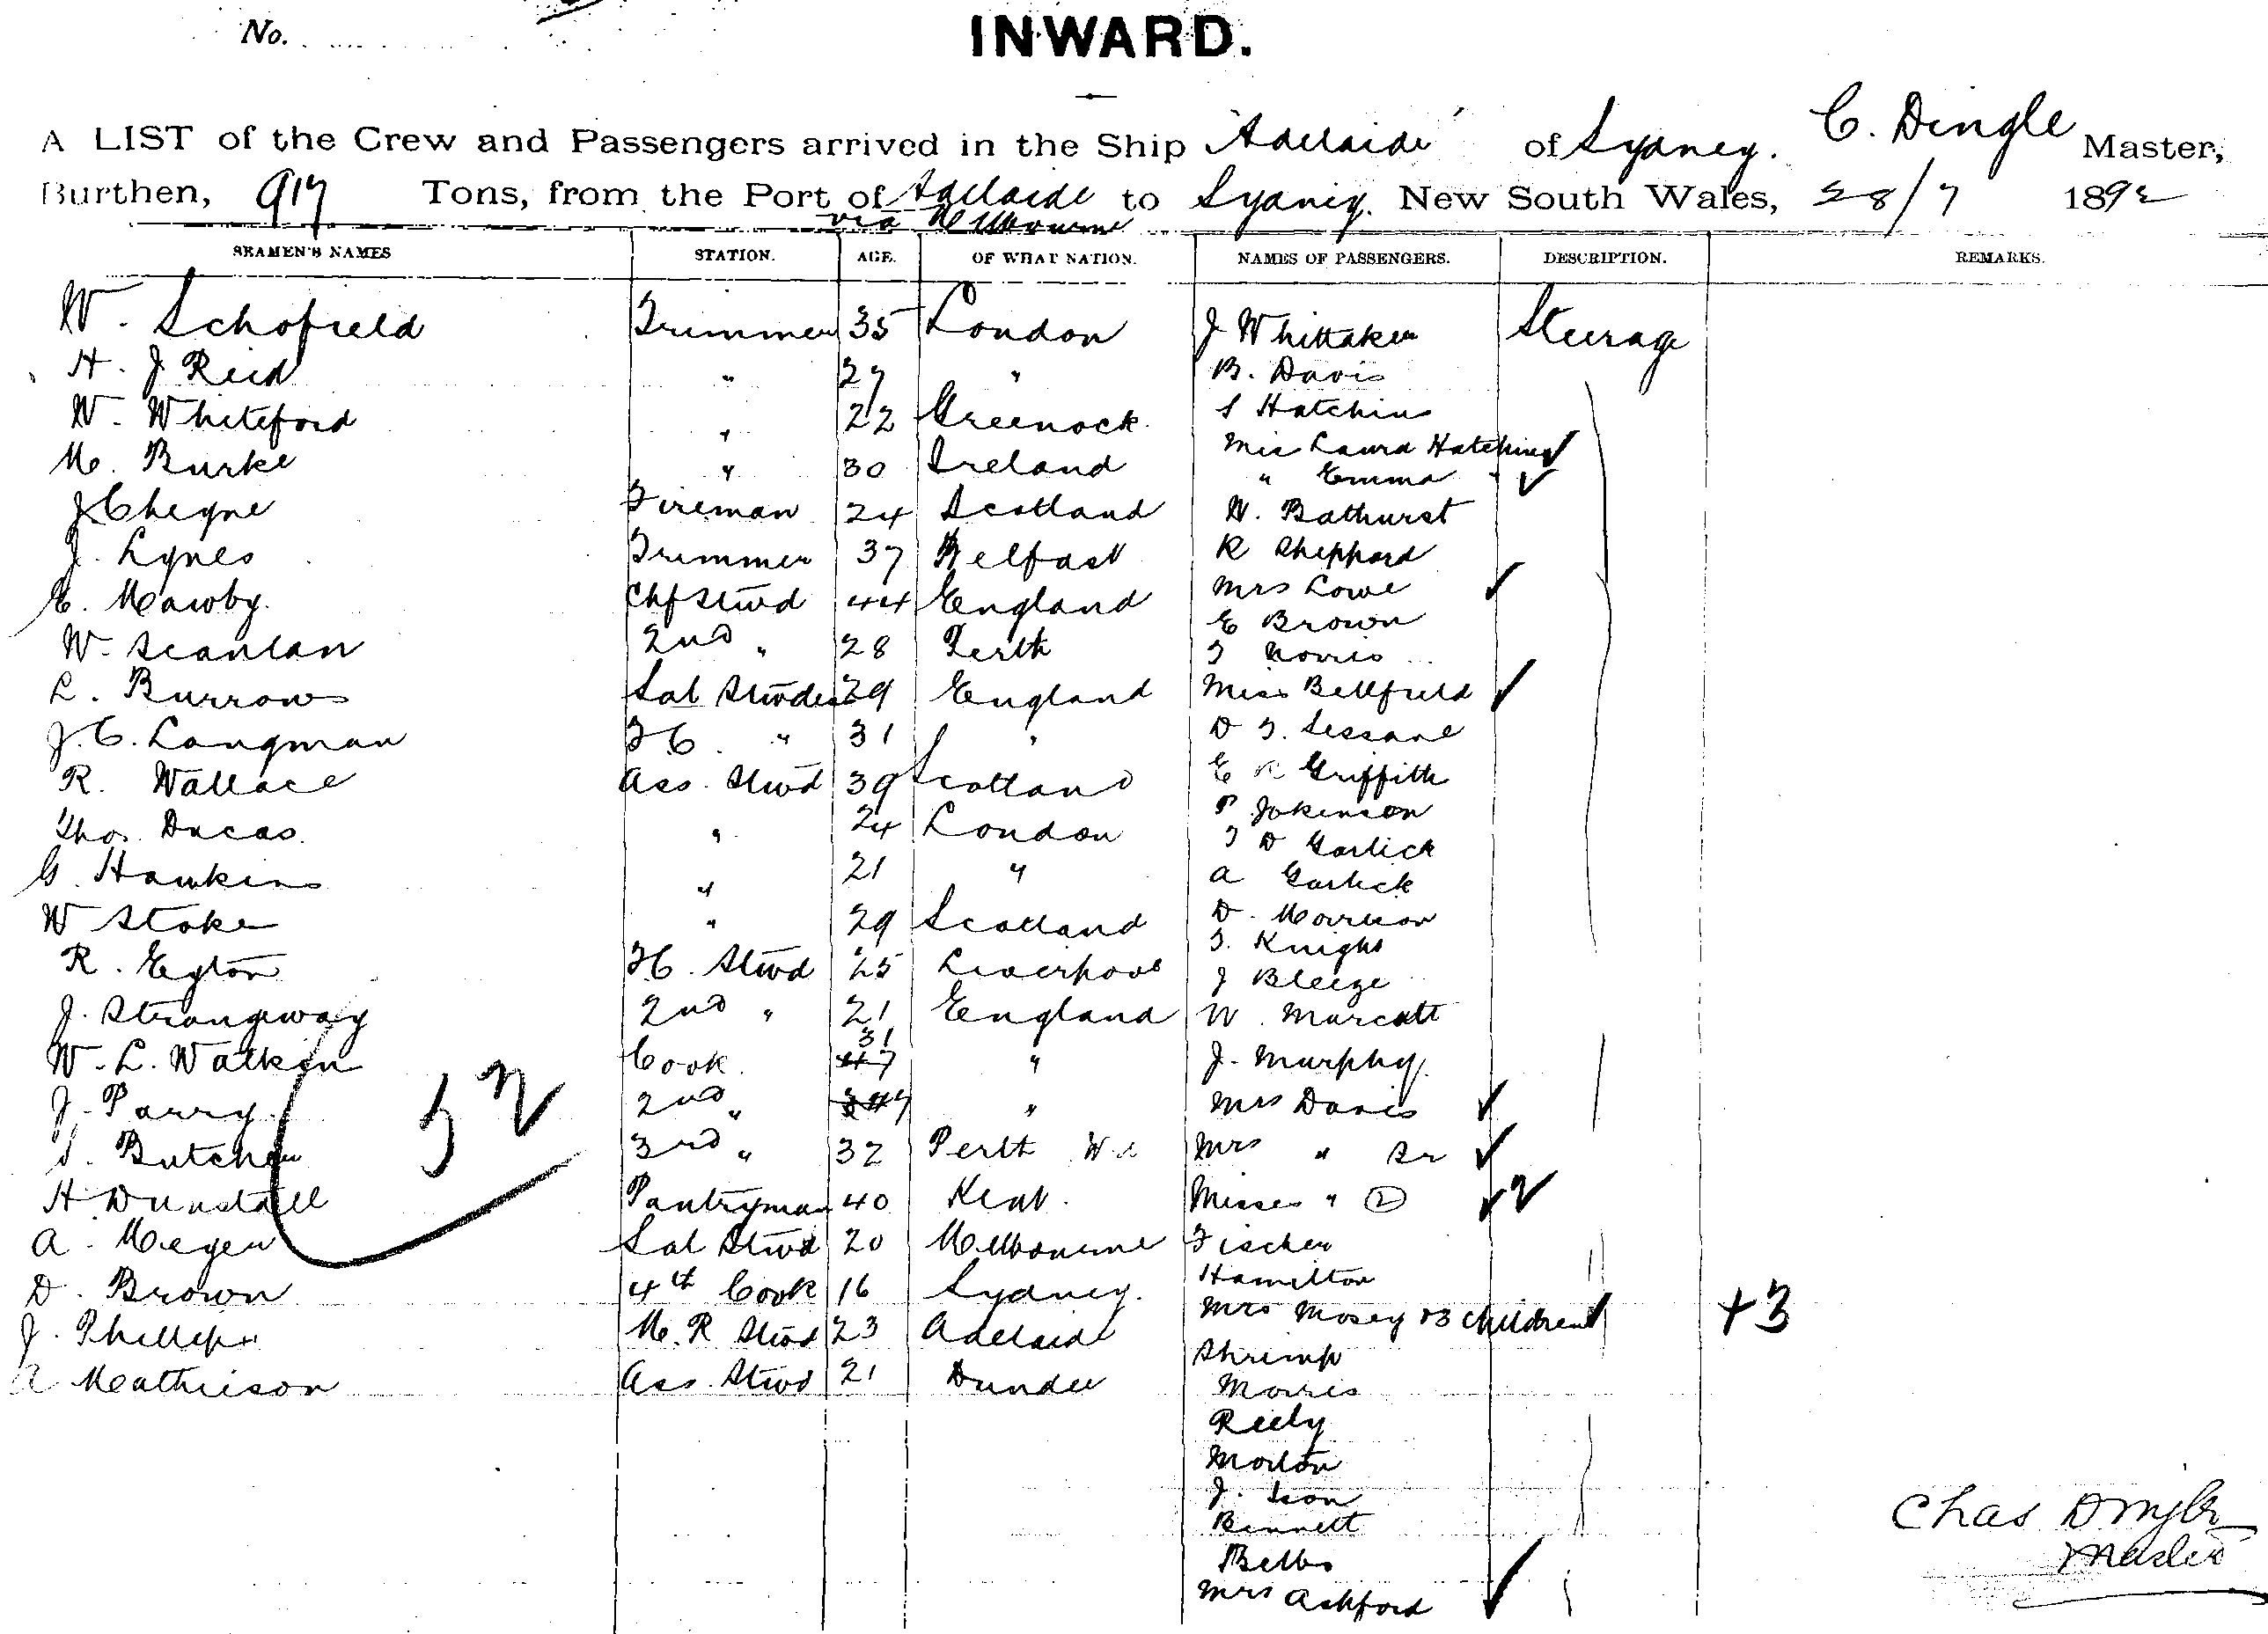 No.
INWARD.
A LIST of the Crew and Passengers arrived in the Ship "Adelaide" of Sydney. C. Dingle Master,
Burthen, 917 Tons, from the Port of Adelaide to Sydney. New South Wales, 28/7 1892
via Melbourne
SEAMEN'S NAMES STATION. AGE. OF WHAT NATION. NAMES OF PASSENGERS. DESCRIPTION. REMARKS.
W. Schofield Trimmer 35 London J Whittaker Steerage
H. J Reid " 27 " B. Davis
W. Whiteford " 22 Greenock S Hatchins
M. Burke " 30 Ireland Miss Laura Hatchins
" Emma "
J Cheyne Fireman 24 Scotland W. Bathurst
J. Lynes Trimmer 37 Belfast R Sheppard
E. Mawby. Chf Stwd 44 England Mrs Lowe
W. Scanlan 2nd " 28 Perth E Brown
T Norris
L. Burrows Sal Stwdess 29 England Miss Bellfield
J. C. Langman F C. " 31 " D T.
R. Wallace Ass. Stwd 39 Scotland E R Griffith
P Jokinson
Thos. Ducas. " 24 London T D Garlick
G. Hawkins " 21 " A Garlick
W Stoke " 29 Scotland D. Morrison
T. Knight
R. Egton FC. Stwd 25 Liverpool J Bleeze
J. Strangway 2nd " 21 England W. Marcott
W. L. Watkin Cook. 31 47 " J. Murphy.
J. Parry. 2nd " 47 " Mrs Davis
52
S. Butcher 3rd " 32 Perth W.A Mrs " Sr
H Dunstall Pantryman 40 Kent. Misses " 2 2
A. Meyer Sal Stwd 20 Melbourne Fischer
D. Brown 4th Cook 16 Sydney. Hamilton
Mrs Mosey & 3 children +3
J. Phillips M. R Stwd 23 Adelaide
Shrimp
A Mathieson Ass. Stwd 21 Dundee Morris
Reely
Morton
J.
Bennett
Bells
Mrs Ashford
Chas Dingle
Master